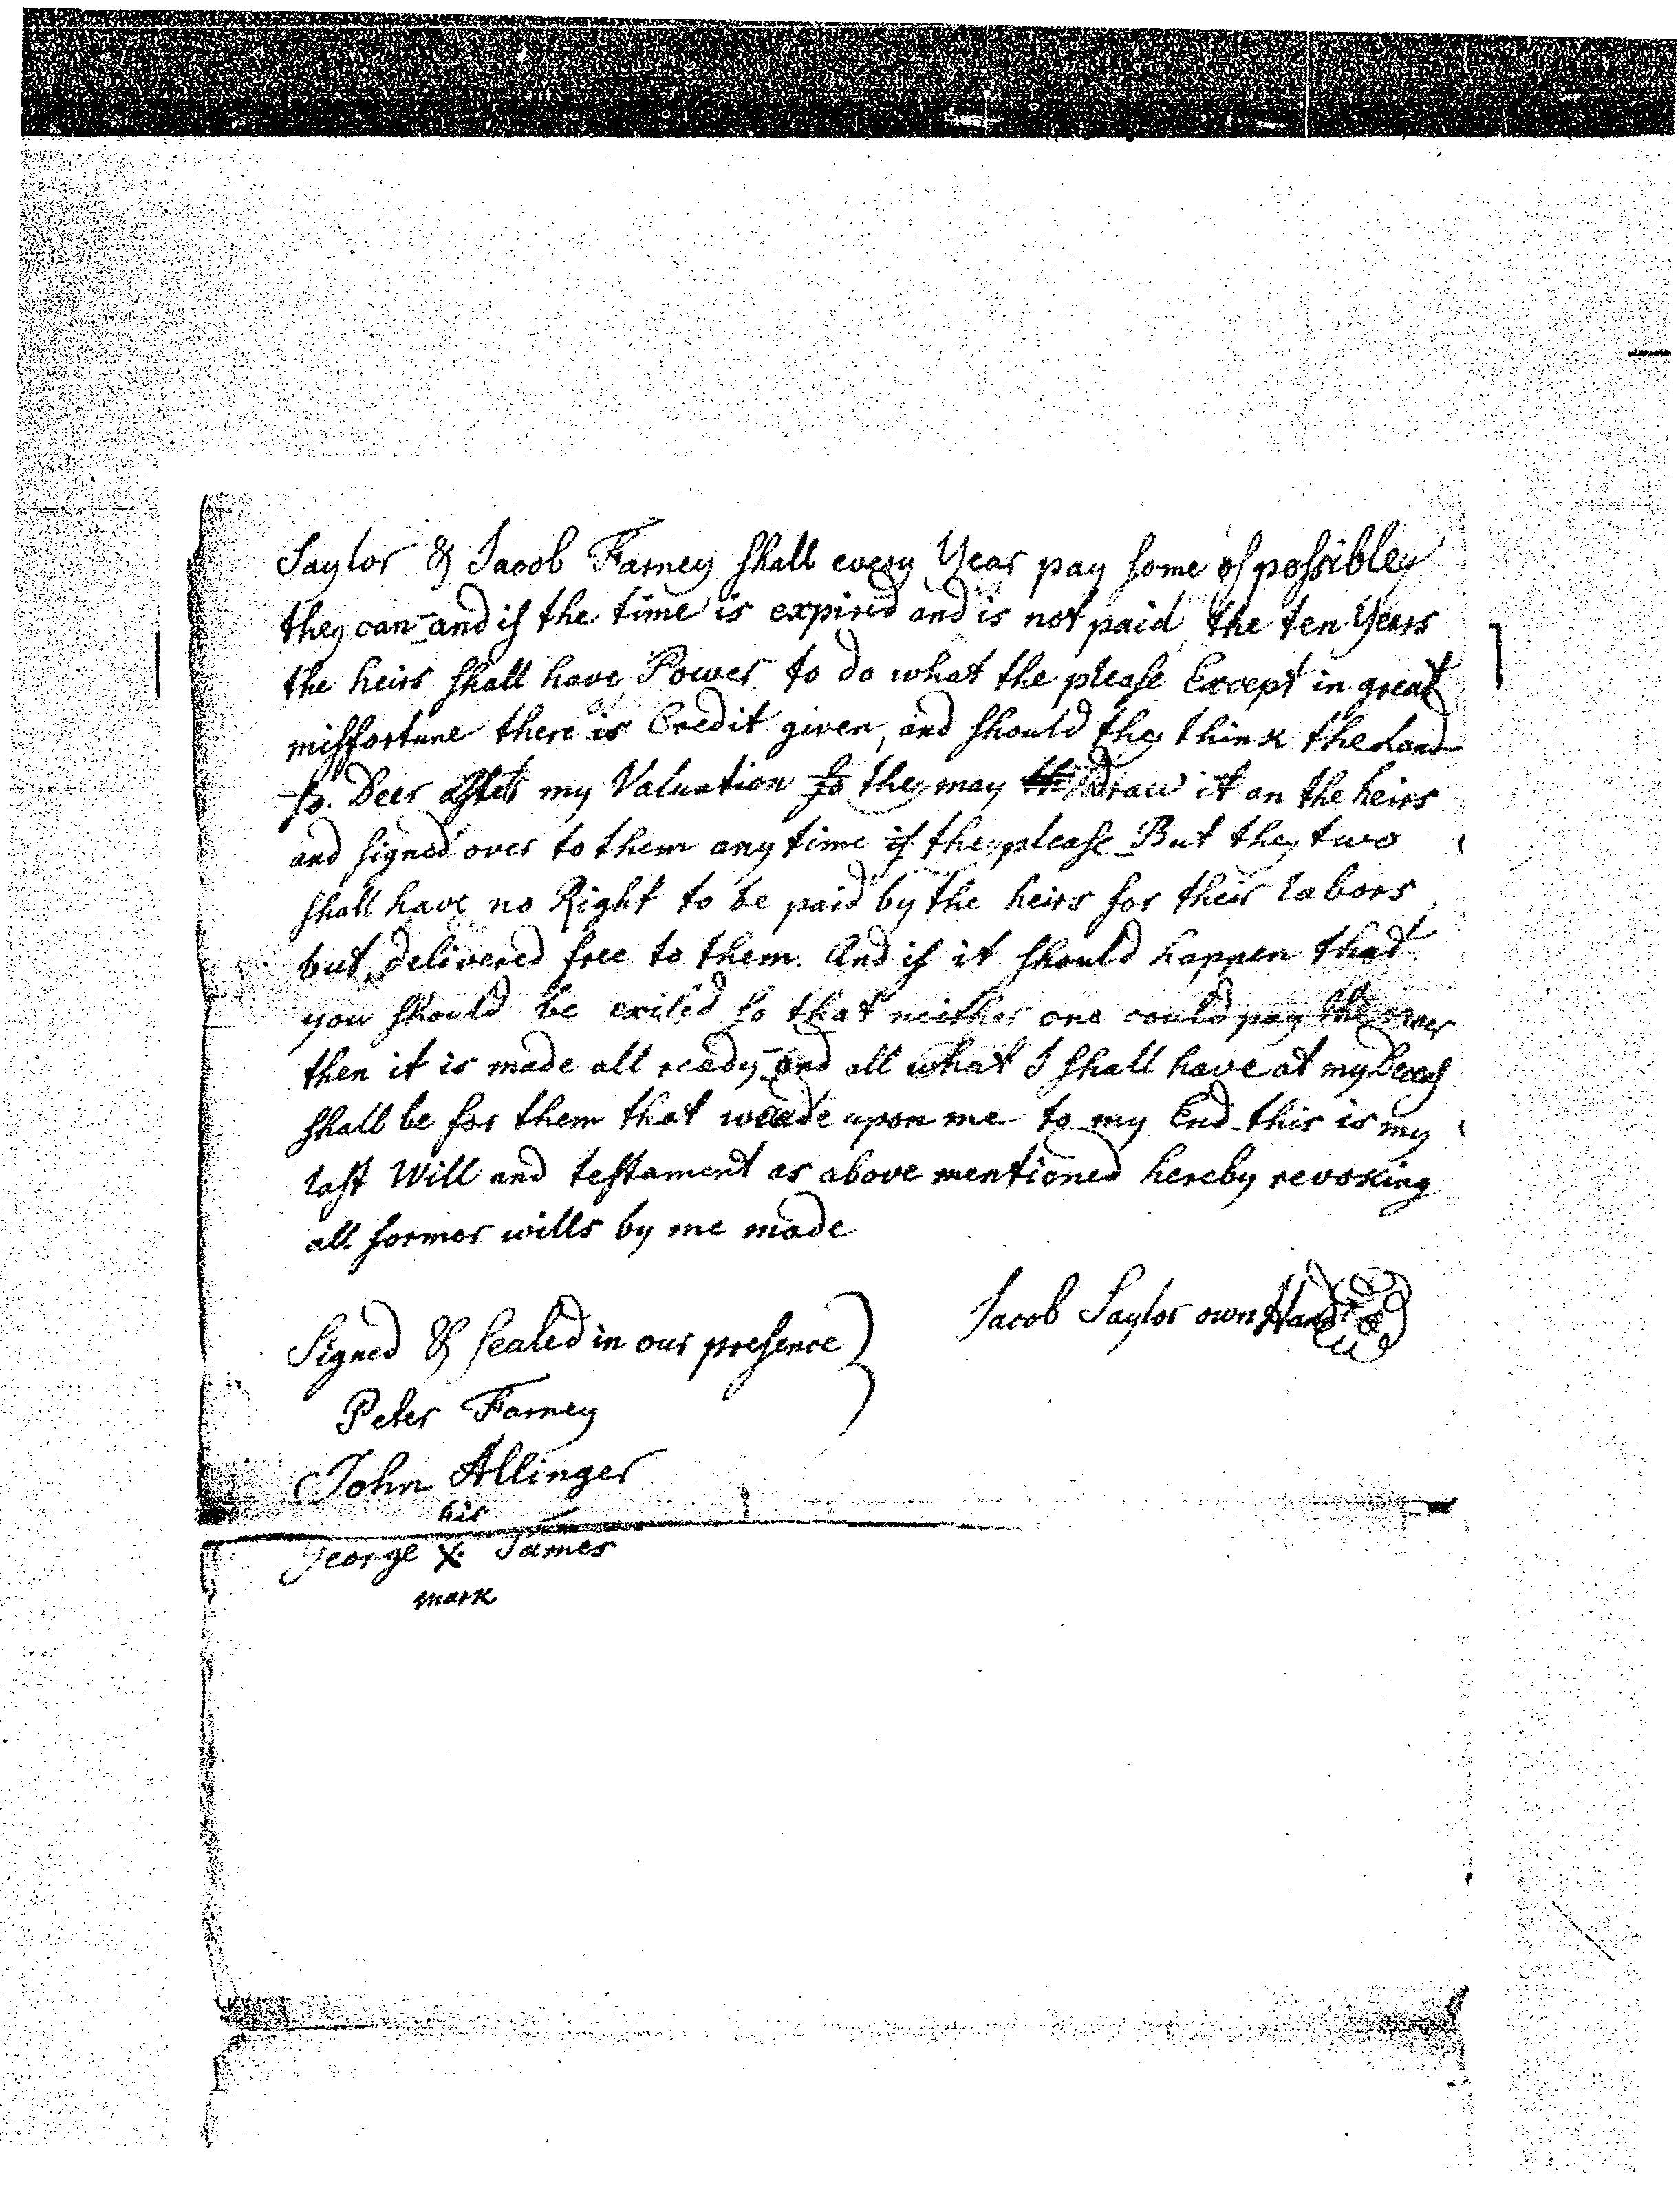 Saylor & Jacob Farney shall every Year pay some of possibley
they can - and if the time is expired and is not paid the ten Years
the heirs shall have Power to do what the please Except in great
missfortune there is Credit given, and should they think the Land
so Deer after my Valuation so they may draw it an the heirs
and signed over to them any time if they please - But they two
shall have no Right to be paid by the heirs for their Labors
but delivered free to them. And if it should happen that
you should be exiled so that neither one could pay the other
then it is made all ready - and all what I shall have at my Deceas
shall be for them that waide upon me to my End - this is my
last Will and testament as above mentioned hereby revoking
all former wills by me made
Jacob Saylor own Hand
Signed & sealed in our presence
Peter Farney
John Allinger
his
George X James
mark